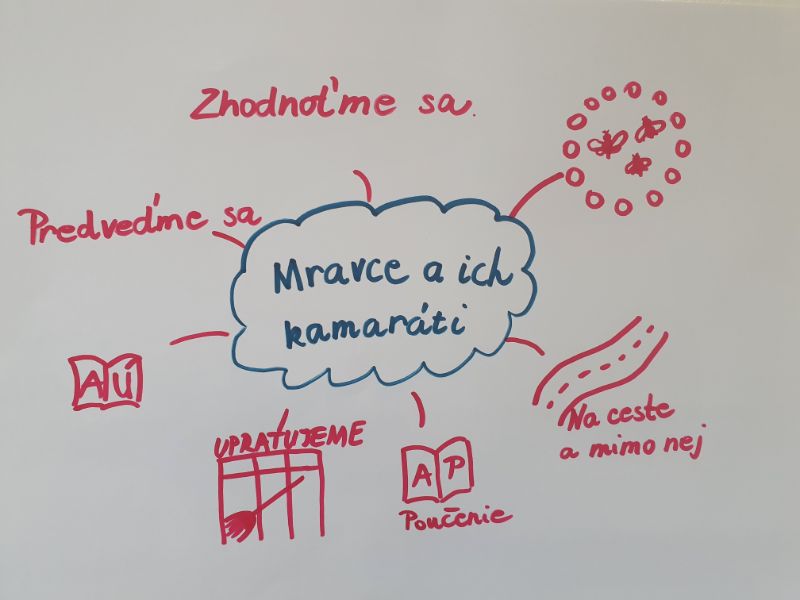 Zhodnoťme sa.
Predveďme sa
Mravce a ich
kamaráti
AÚ
UPRATUJEME
AP
Poučenie
Na ceste
a mimo nej